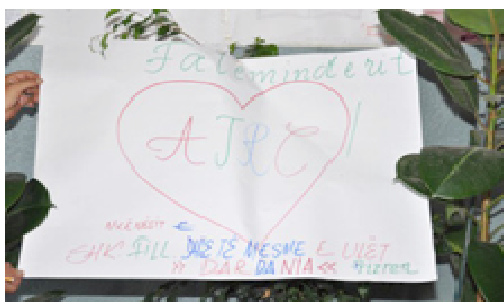 Faleminderit
ATRC!
NXËNËSIT E
SHK. FILL. DHE TË MESME E ULËT
>> DARDANIA << Prizren